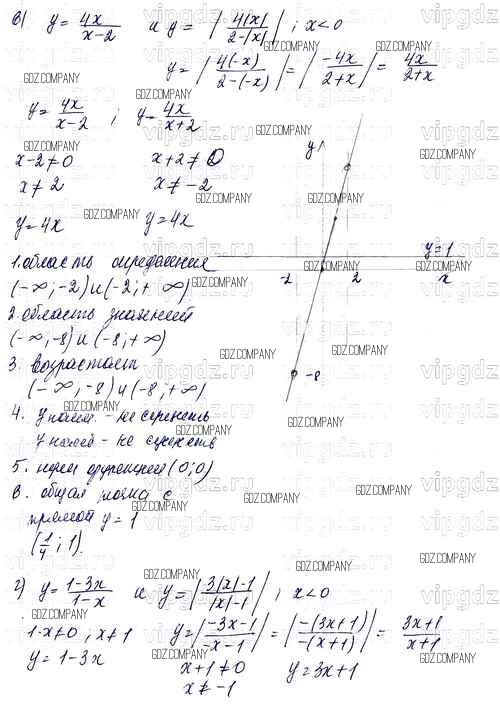 в) y = 4x/(x-2) и y = |4|x|/(2-|x|)| ; x<0
y = |4(-x)/(2-(-x))| = |-4x/(2+x)| = 4x/(2+x)
y = 4x/(x-2) ; y = 4x/(x+2)
x-2≠0 x+2≠0
x≠2 x≠-2
y=4x y=4x
1. область определения
(-∞;-2)и(-2;+∞)
2. область значений
(-∞,-8)и(-8;+∞)
3. возрастает
(-∞,-8)и(-8,+∞)
4. y наим. - не существ
y наиб - не существ
5. нули функции (0;0)
В. общая точка с
прямой y=1
(1/4;1).
y
y=1
x
-2
2
-8
г) y = (1-3x)/(1-x) и y = |(3|x|-1)/(|x|-1)| ; x<0
1-x≠0, x≠1 y = |(-3x-1)/(-x-1)| = |-(3x+1)/-(x+1)| = (3x+1)/(x+1)
y=1-3x x+1≠0 y=3x+1
x≠-1
GDZ.COMPANY
vipgdz.ru